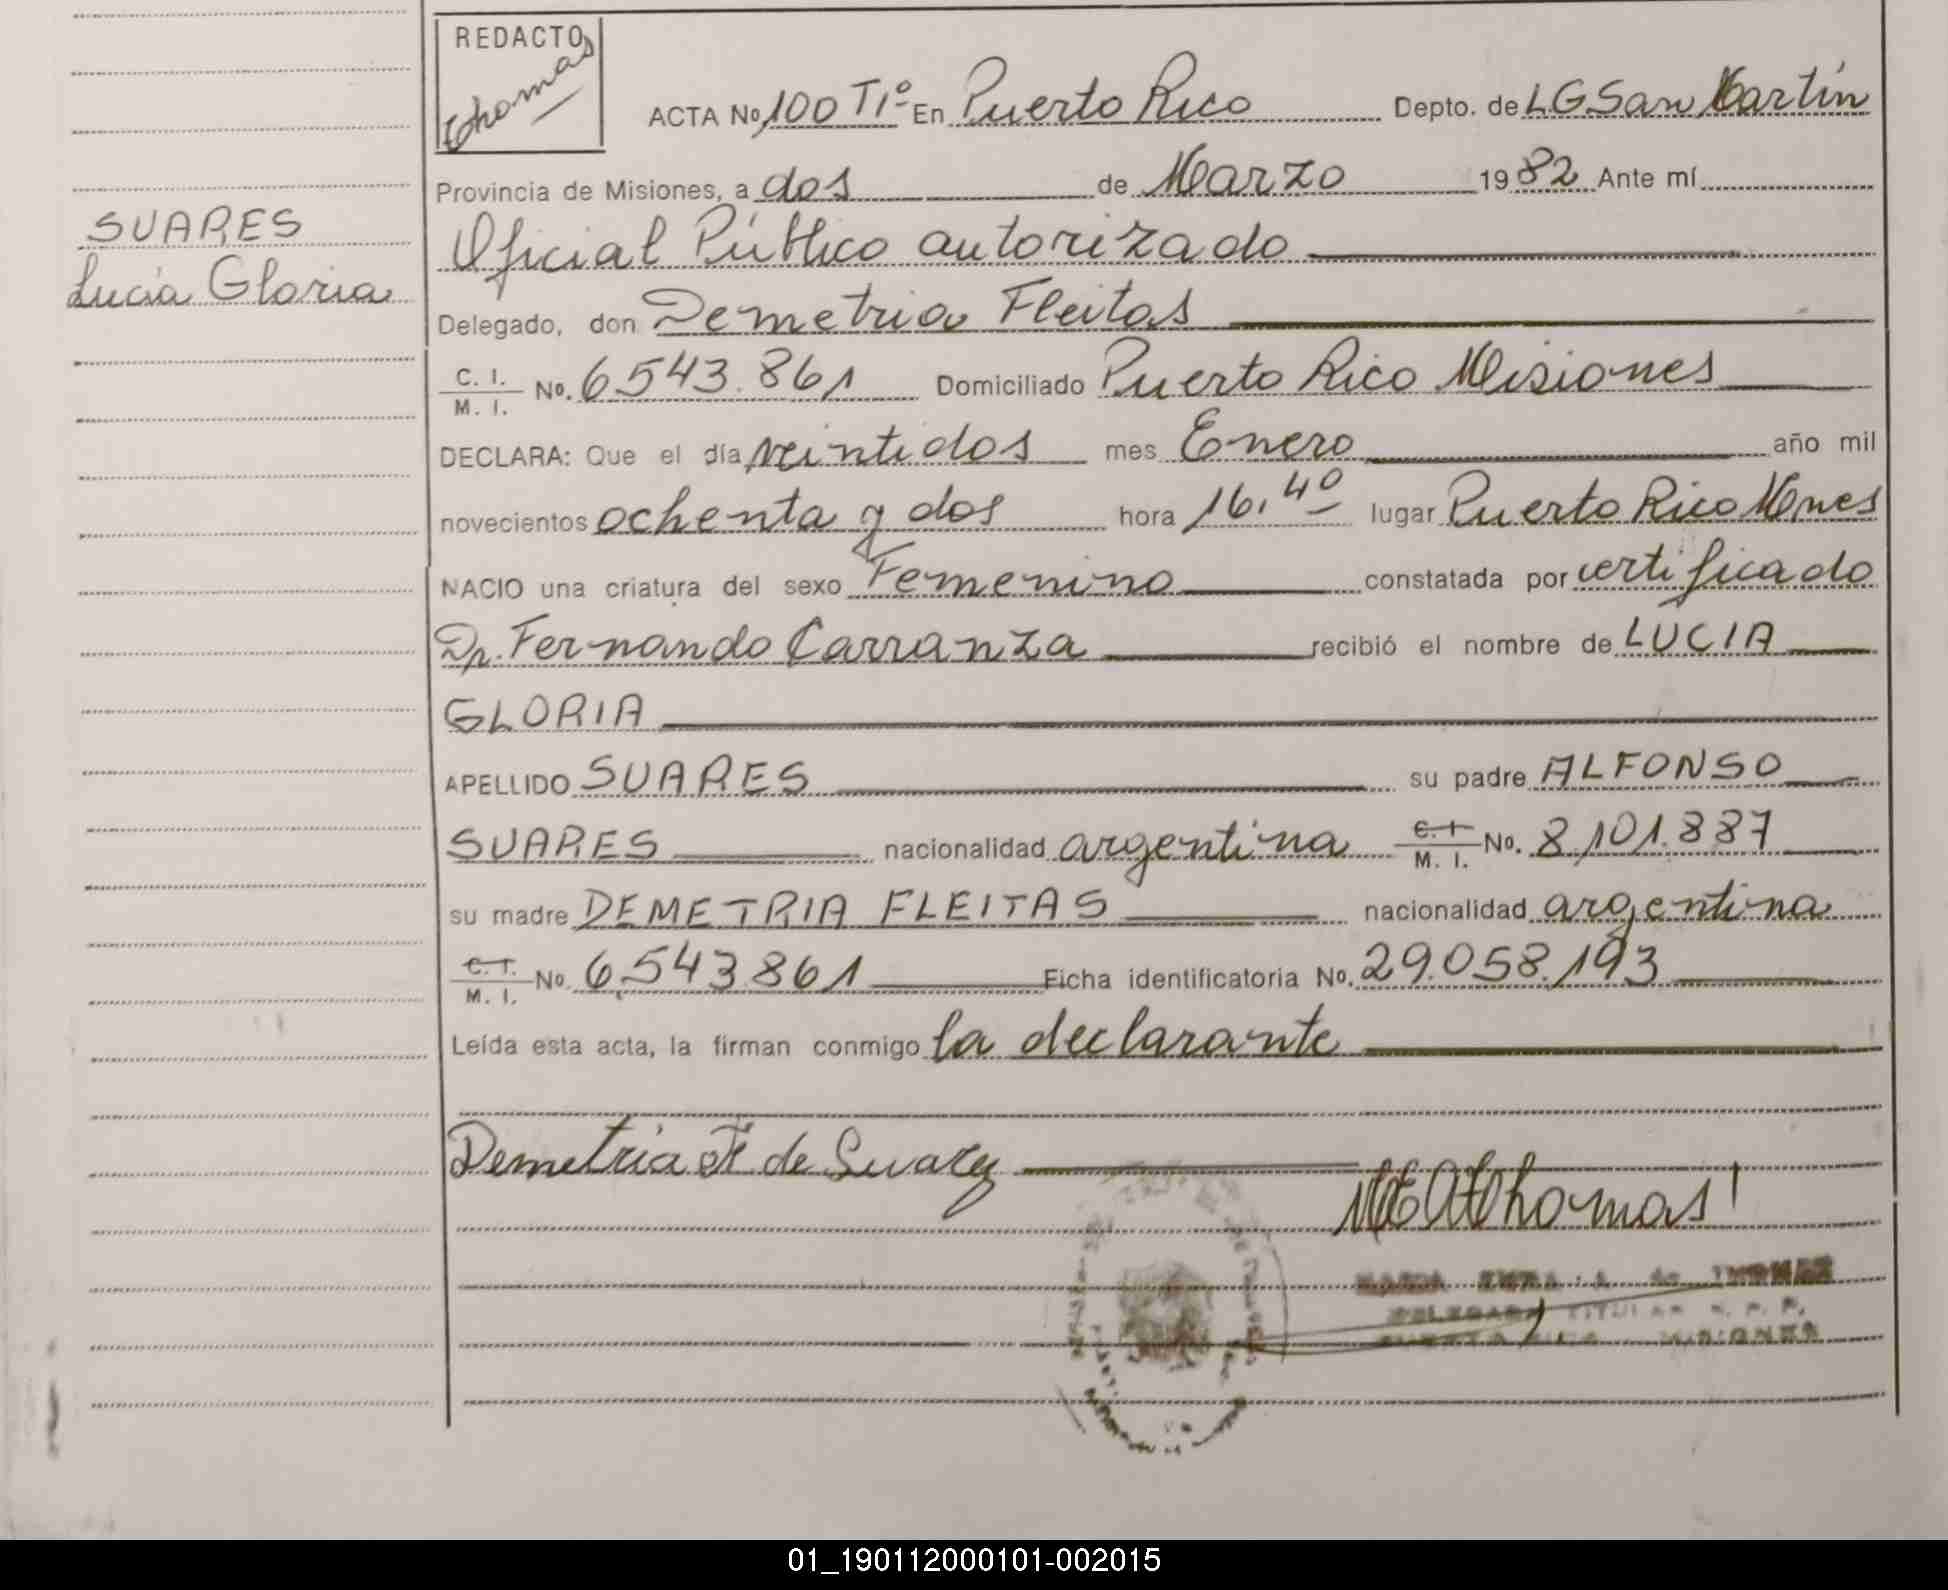 REDACTO
Thomas
ACTA No 100 T1º En Puerto Rico Depto. de LG San Martín
Provincia de Misiones, a dos de Marzo 1982 Ante mí
SUARES
Oficial Público autorizado
Lucia Gloria
Delegado, don Demetria Fleitas
C. I. M. I. No. 6543.861 Domiciliado Puerto Rico Misiones
DECLARA: Que el día veintidos mes Enero año mil
novecientos ochenta y dos hora 16.40 lugar Puerto Rico Mnes
NACIO una criatura del sexo Femenino constatada por certificado
Dr. Fernando Carranza recibió el nombre de LUCIA
GLORIA
APELLIDO SUARES su padre ALFONSO
SUARES nacionalidad argentina C. I. M. I. No. 8.101.887
su madre DEMETRIA FLEITAS nacionalidad argentina
C. I. M. I. No. 6.543.861 Ficha identificatoria No. 29.058.193
Leída esta acta, la firman conmigo la declarante
Demetria F de Suarez
Thomas
DELEGADA TITULAR R. P. P.
PUERTO RICO MISIONES
01_190112000101-002015